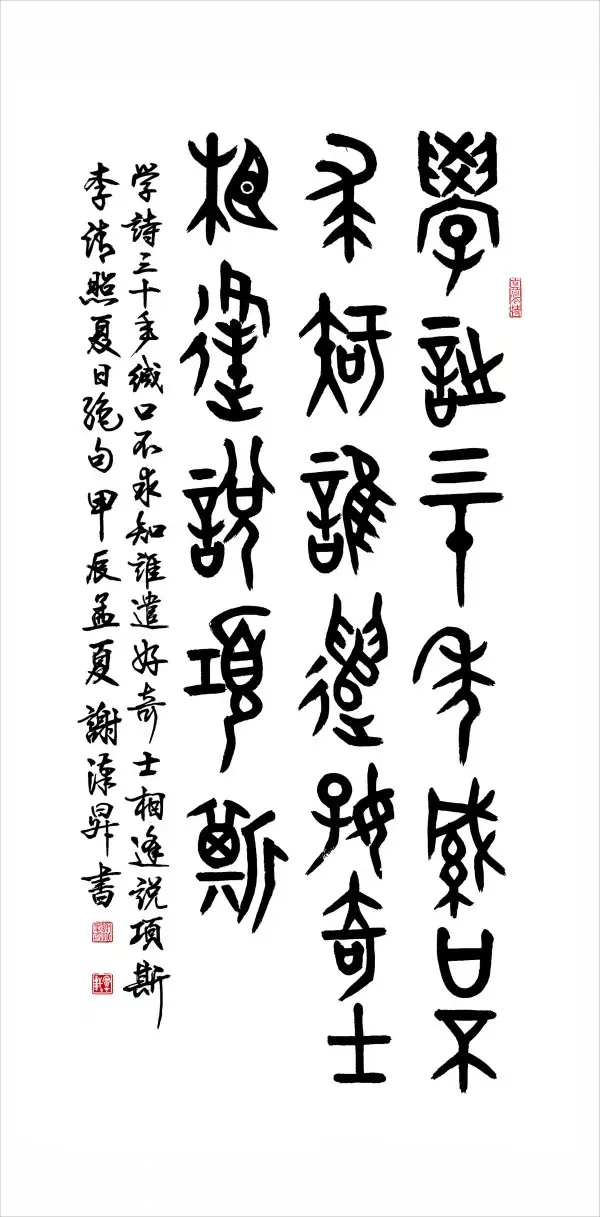 學詩三十年緘口不
求知誰遣好奇士
相逢說項斯
学詩三十年缄口不求知誰遣好奇士相逢说項斯
李清照夏日绝句甲辰孟夏謝昇書